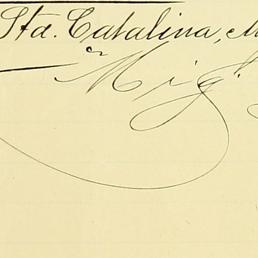 Sta. Catalina, M
Mig.